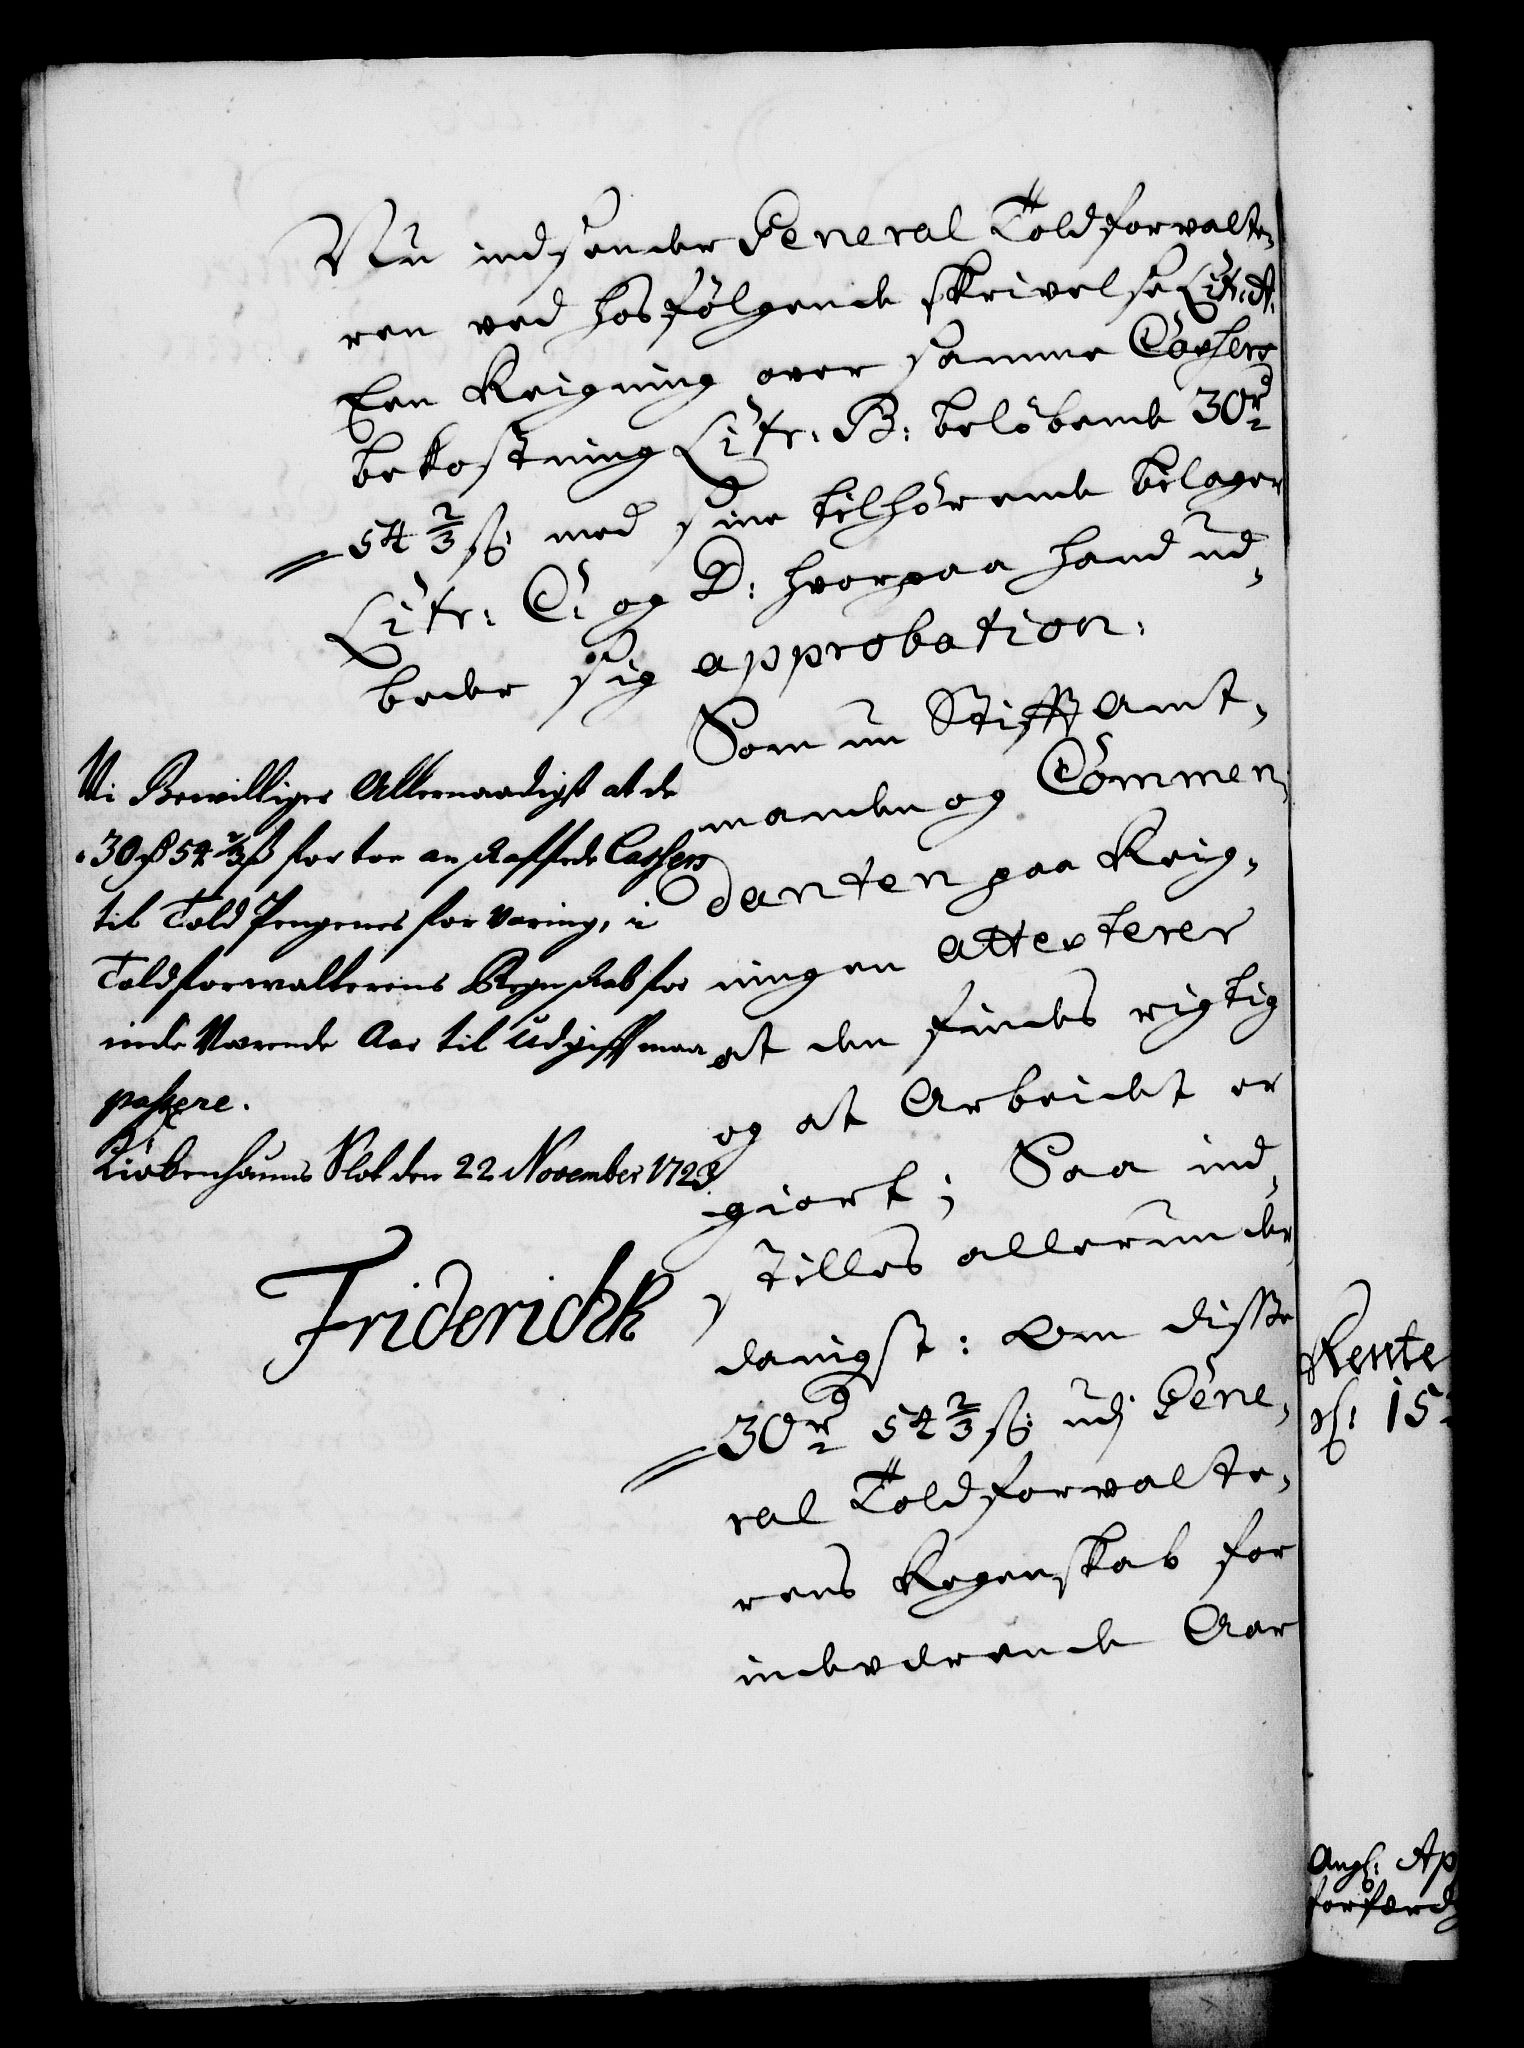 Nu indsender General Toldforvalte,
ren ved hosfölgende skrivelse Litr: A.
Een Reigning over samme Cashers
bekostning Litr: B: belöbende 30 rd
54 2/3 s: med sine tilhörende bilager
Litr: C: og D: hvorpaa hand ud,
beder sig approbation:
Som nu Stifftamt,
manden og Commen,
danten paa Reig,
ningen attesterer
at den findes rigtig
og at Arbeidet er
giort; Saa ind,
stilles allerunder
danigst: Om disse
30 rd 54 2/3 s: udj Gene,
ral Toldforvalte,
rens Regenskab for
indeværende Aar
Vi Bewilliger Allernaadigst at de
30 rd 54 2/3 s for toe anskaffede Cashers
til Told Pengenes forvaring, i
Toldforwalterens Regnskab for
inde Værende Aar til Udgift maa
passere.
Kiöbenhauns Slot den 22 November 1723
Friderich R
Rente
d: 15
Ang: Ap
forfærd